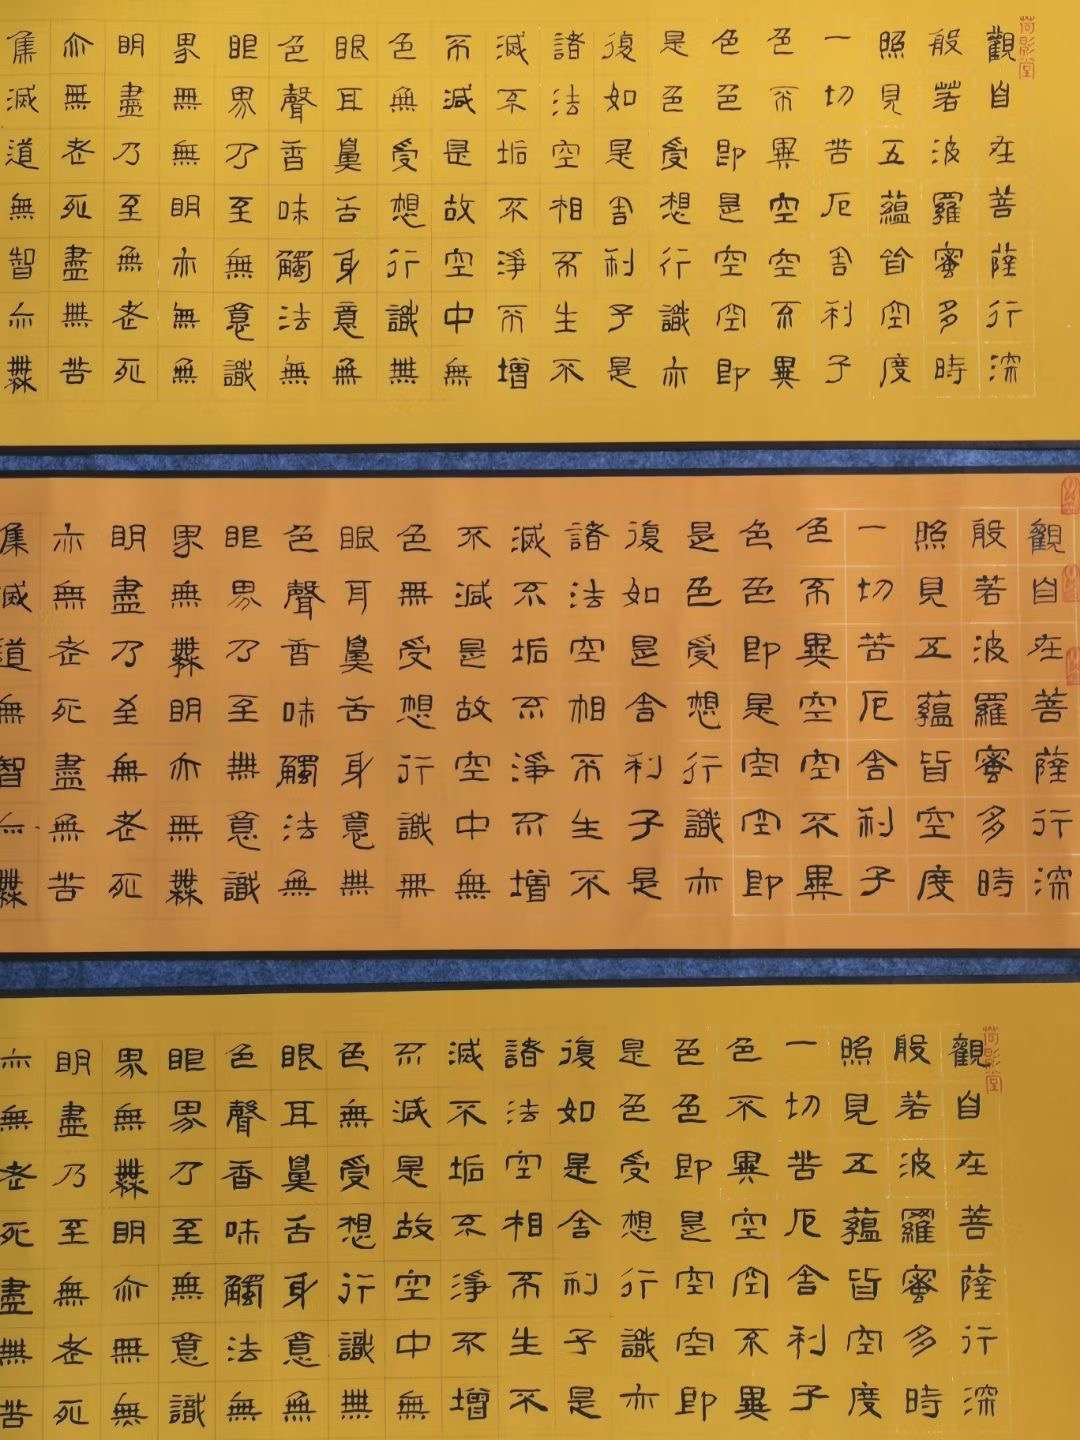 荷影堂
觀自在菩薩行深
般若波羅蜜多時
照見五蘊皆空度
一切苦厄舍利子
色不異空空不異
色色即是空空即
是色受想行識亦
復如是舍利子是
諸法空相不生不
滅不垢不淨不增
不減是故空中無
色無受想行識無
眼耳鼻舌身意無
色聲香味觸法無
眼界乃至無意識
界無無明亦無無
明盡乃至無老死
亦無老死盡無苦
集滅道無智亦無
觀自在菩薩行深
般若波羅蜜多時
照見五蘊皆空度
一切苦厄舍利子
色不異空空不異
色色即是空空即
是色受想行識亦
復如是舍利子是
諸法空相不生不
滅不垢不淨不增
不減是故空中無
色無受想行識無
眼耳鼻舌身意無
色聲香味觸法無
眼界乃至無意識
界無無明亦無無
明盡乃至無老死
亦無老死盡無苦
集滅道無智亦無
荷影堂
觀自在菩薩行深
般若波羅蜜多時
照見五蘊皆空度
一切苦厄舍利子
色不異空空不異
色色即是空空即
是色受想行識亦
復如是舍利子是
諸法空相不生不
滅不垢不淨不增
不減是故空中無
色無受想行識無
眼耳鼻舌身意無
色聲香味觸法無
眼界乃至無意識
界無無明亦無無
明盡乃至無老死
亦無老死盡無苦